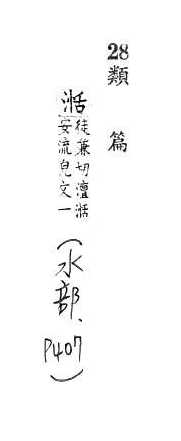 28
類篇
湉
徒兼切澶湉
安流皃文一
（水部、P407）